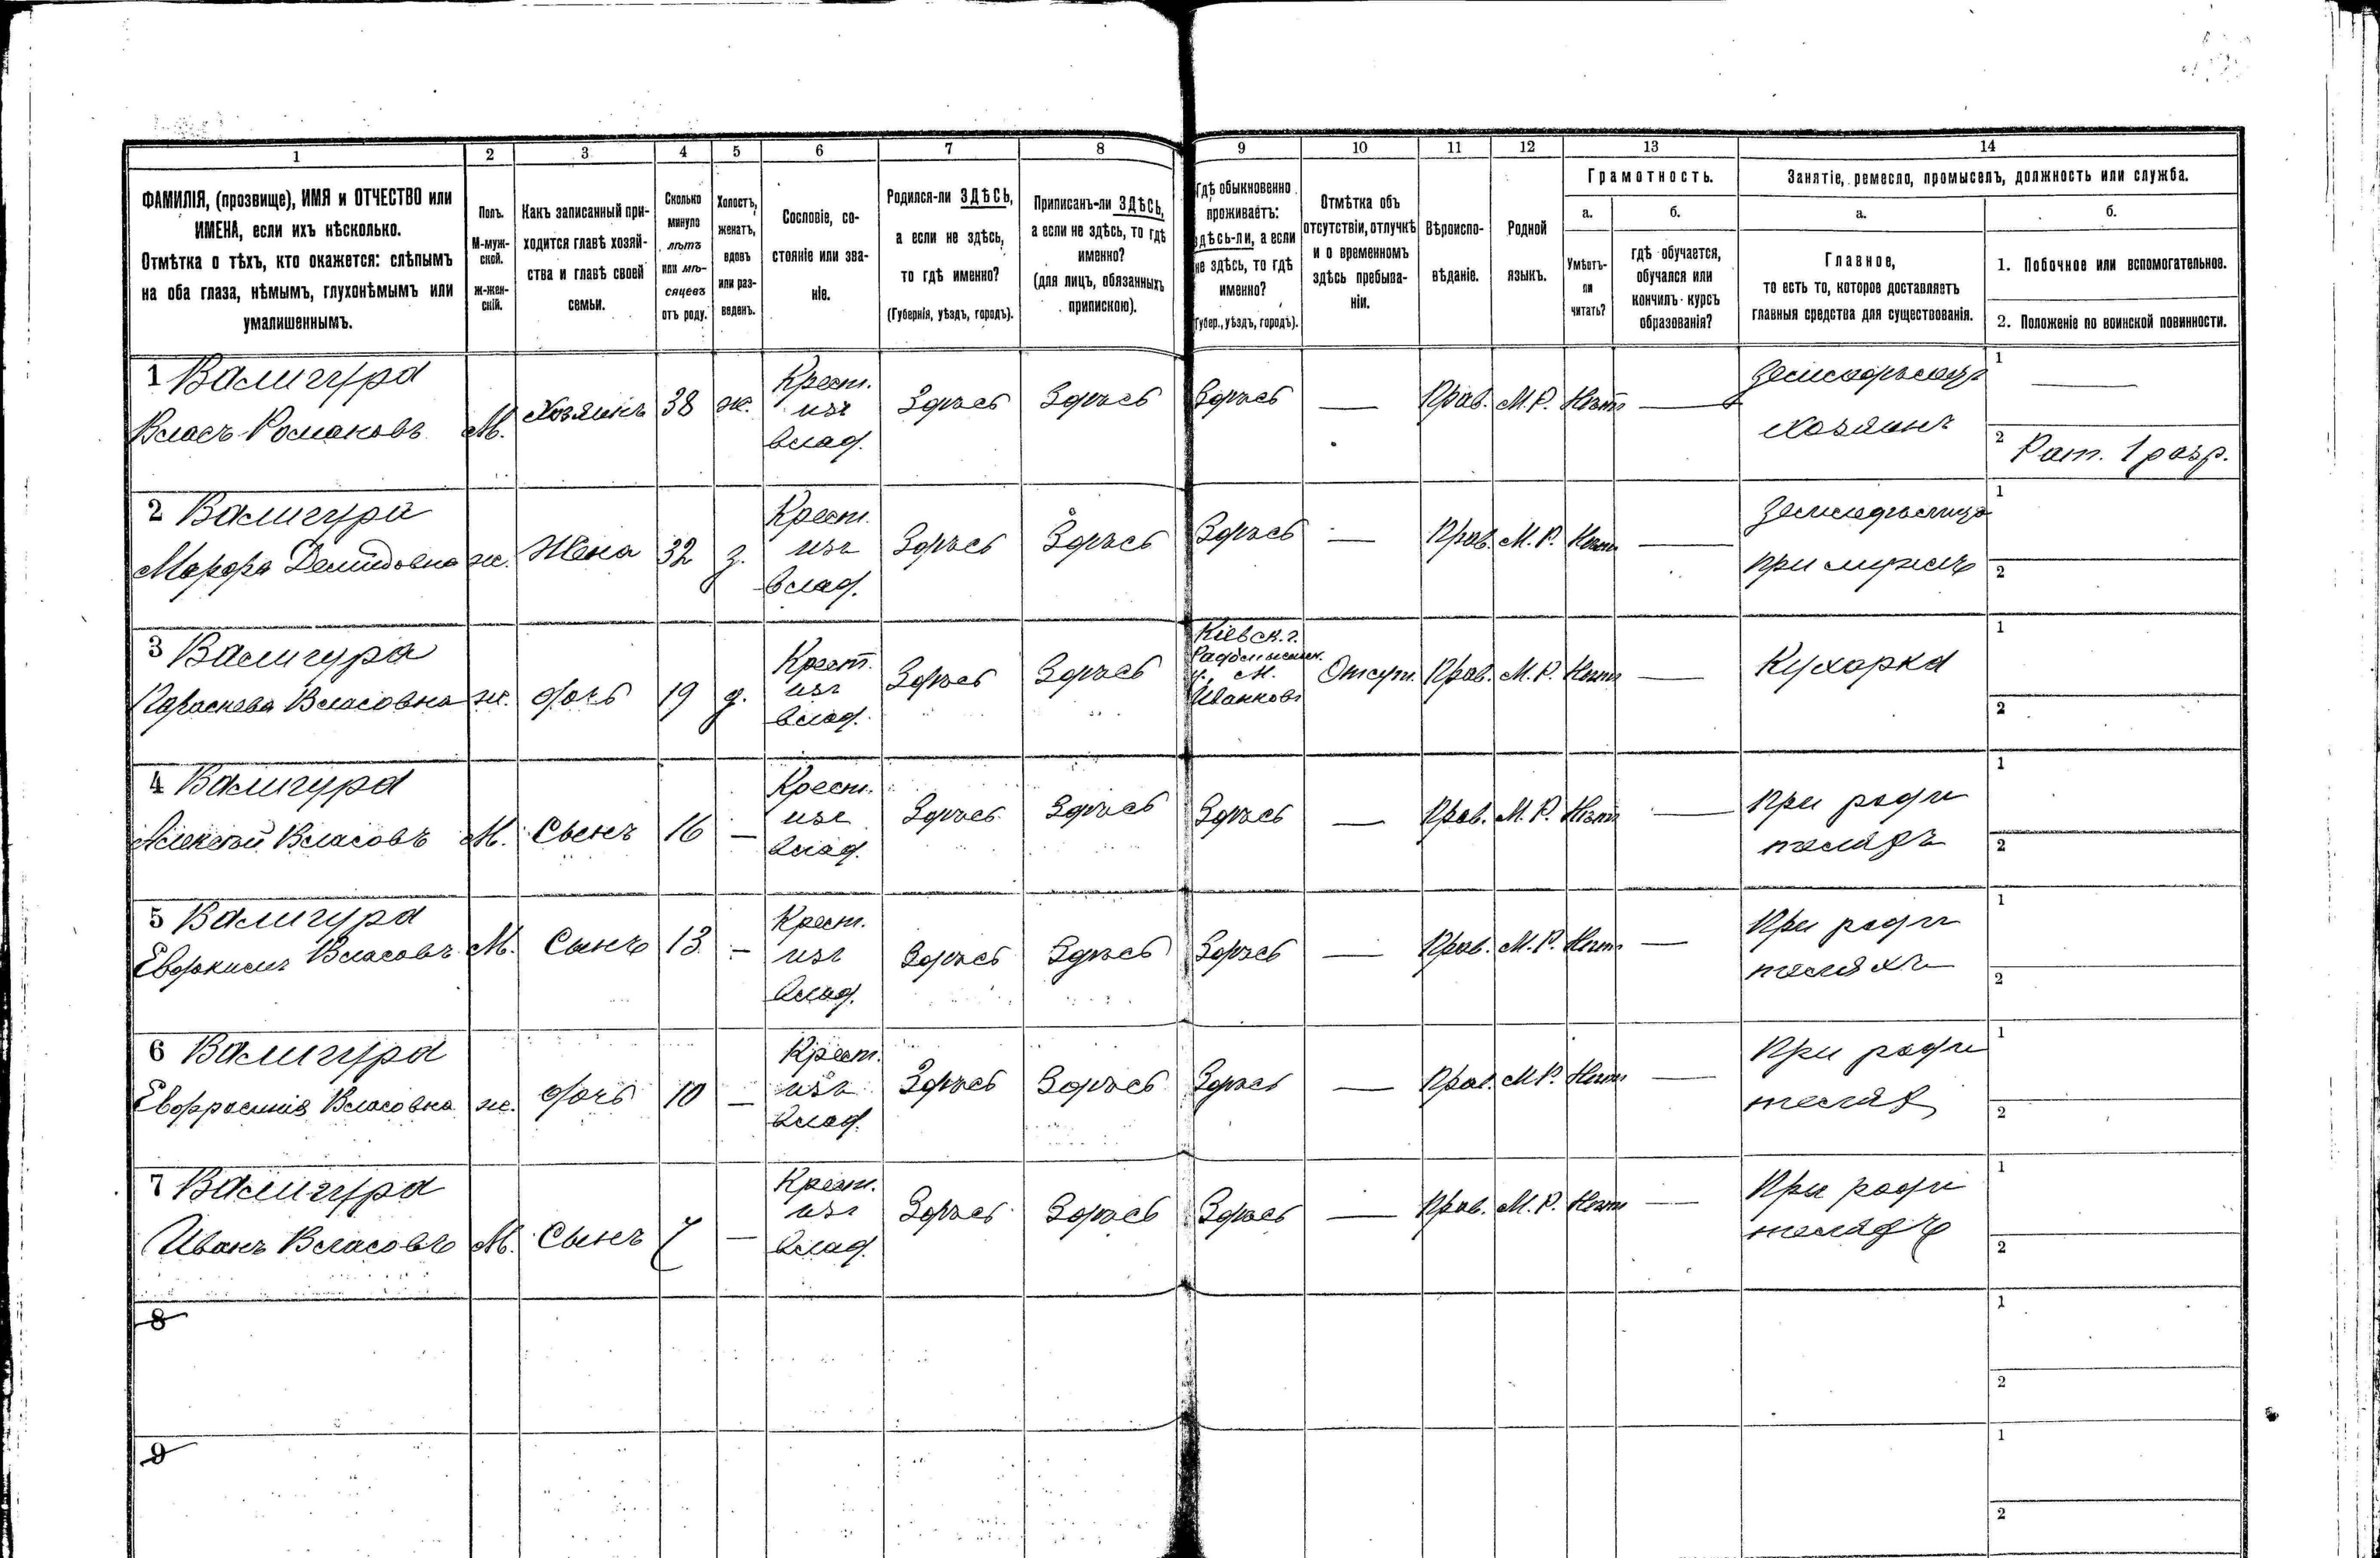 1 2 3 4 5 6 7 8 9 10 11 12 13 14
ФАМИЛІЯ, (прозвище), ИМЯ и ОТЧЕСТВО или
ИМЕНА, если ихъ нѣсколько.
Отмѣтка о тѣхъ, кто окажется: слѣпымъ
на оба глаза, нѣмымъ, глухонѣмымъ или
умалишеннымъ.
Полъ.
М-муж-
ской.
ж-жен-
скій.
Какъ записанный при-
ходится главѣ хозяй-
ства и главѣ своей
семьи.
Сколько
минуло
лѣтъ
или мѣ-
сяцевъ
отъ роду.
Холостъ,
женатъ,
вдовъ
или раз-
веденъ.
Сословіе, со-
стояніе или зва-
ніе.
Родился-ли ЗДѢСЬ,
а если не здѣсь,
то гдѣ именно?
(Губернія, уѣздъ, городъ).
Приписанъ-ли ЗДѢСЬ,
а если не здѣсь, то гдѣ
именно?
(для лицъ, обязанныхъ
припискою).
Гдѣ обыкновенно
проживаетъ:
здѣсь-ли, а если
не здѣсь, то гдѣ
именно?
(Губер., уѣздъ, городъ).
Отмѣтка объ
отсутствіи, отлучкѣ
и о временномъ
здѣсь пребыва-
ніи.
Вѣроиспо-
вѣданіе.
Родной
языкъ.
Грамотность.
а.
Умѣетъ-
ли
читать?
б.
гдѣ обучается,
обучался или
кончилъ курсъ
образованія?
Занятіе, ремесло, промыселъ, должность или служба.
а.
Главное,
то есть то, которое доставляетъ
главныя средства для существованія.
б.
1. Побочное или вспомогательное.
2. Положеніе по воинской повинности.
1 Валигура
Власъ Романовъ
М.
Хозяинъ
38
ж.
Крест.
изъ
влад.
Здѣсь
Здѣсь
Здѣсь
—
Прав.
М.Р.
Нѣтъ
—
Земледѣлецъ
хозяинъ
1 —
2 Рат. 1 разр.
2 Валигура
Марфа Демидовна
ж.
Жена
32
з.
Крест.
изъ
влад.
Здѣсь
Здѣсь
Здѣсь
—
Прав.
М.Р.
Нѣтъ
—
Земледѣлица
при мужѣ
1
2
3 Валигура
Параскева Власовна
ж.
дочь
19
д.
Крест.
изъ
влад.
Здѣсь
Здѣсь
Кіевск. г.
Радомысльск.
у. м.
Иванковъ
Отсут.
Прав.
М.Р.
Нѣтъ
—
Кухарка
1
2
4 Валигура
Алексѣй Власовъ
М.
Сынъ
16
—
Крест.
изъ
влад.
Здѣсь
Здѣсь
Здѣсь
—
Прав.
М.Р.
Нѣтъ
—
При роди
теляхъ
1
2
5 Валигура
Евфимъ Власовъ
М.
Сынъ
13
—
Крест.
изъ
влад.
Здѣсь
Здѣсь
Здѣсь
—
Прав.
М.Р.
Нѣтъ
—
При роди
теляхъ
1
2
6 Валигура
Евфросинія Власовна
ж.
дочь
10
—
Крест.
изъ
влад.
Здѣсь
Здѣсь
Здѣсь
—
Прав.
М.Р.
Нѣтъ
—
При роди
телях
1
2
7 Валигура
Иванъ Власовъ
М.
Сынъ
7
—
Крест.
изъ
влад.
Здѣсь
Здѣсь
Здѣсь
—
Прав.
М.Р.
Нѣтъ
—
При роди
теляхъ
1
2
8
1
2
9
1
2